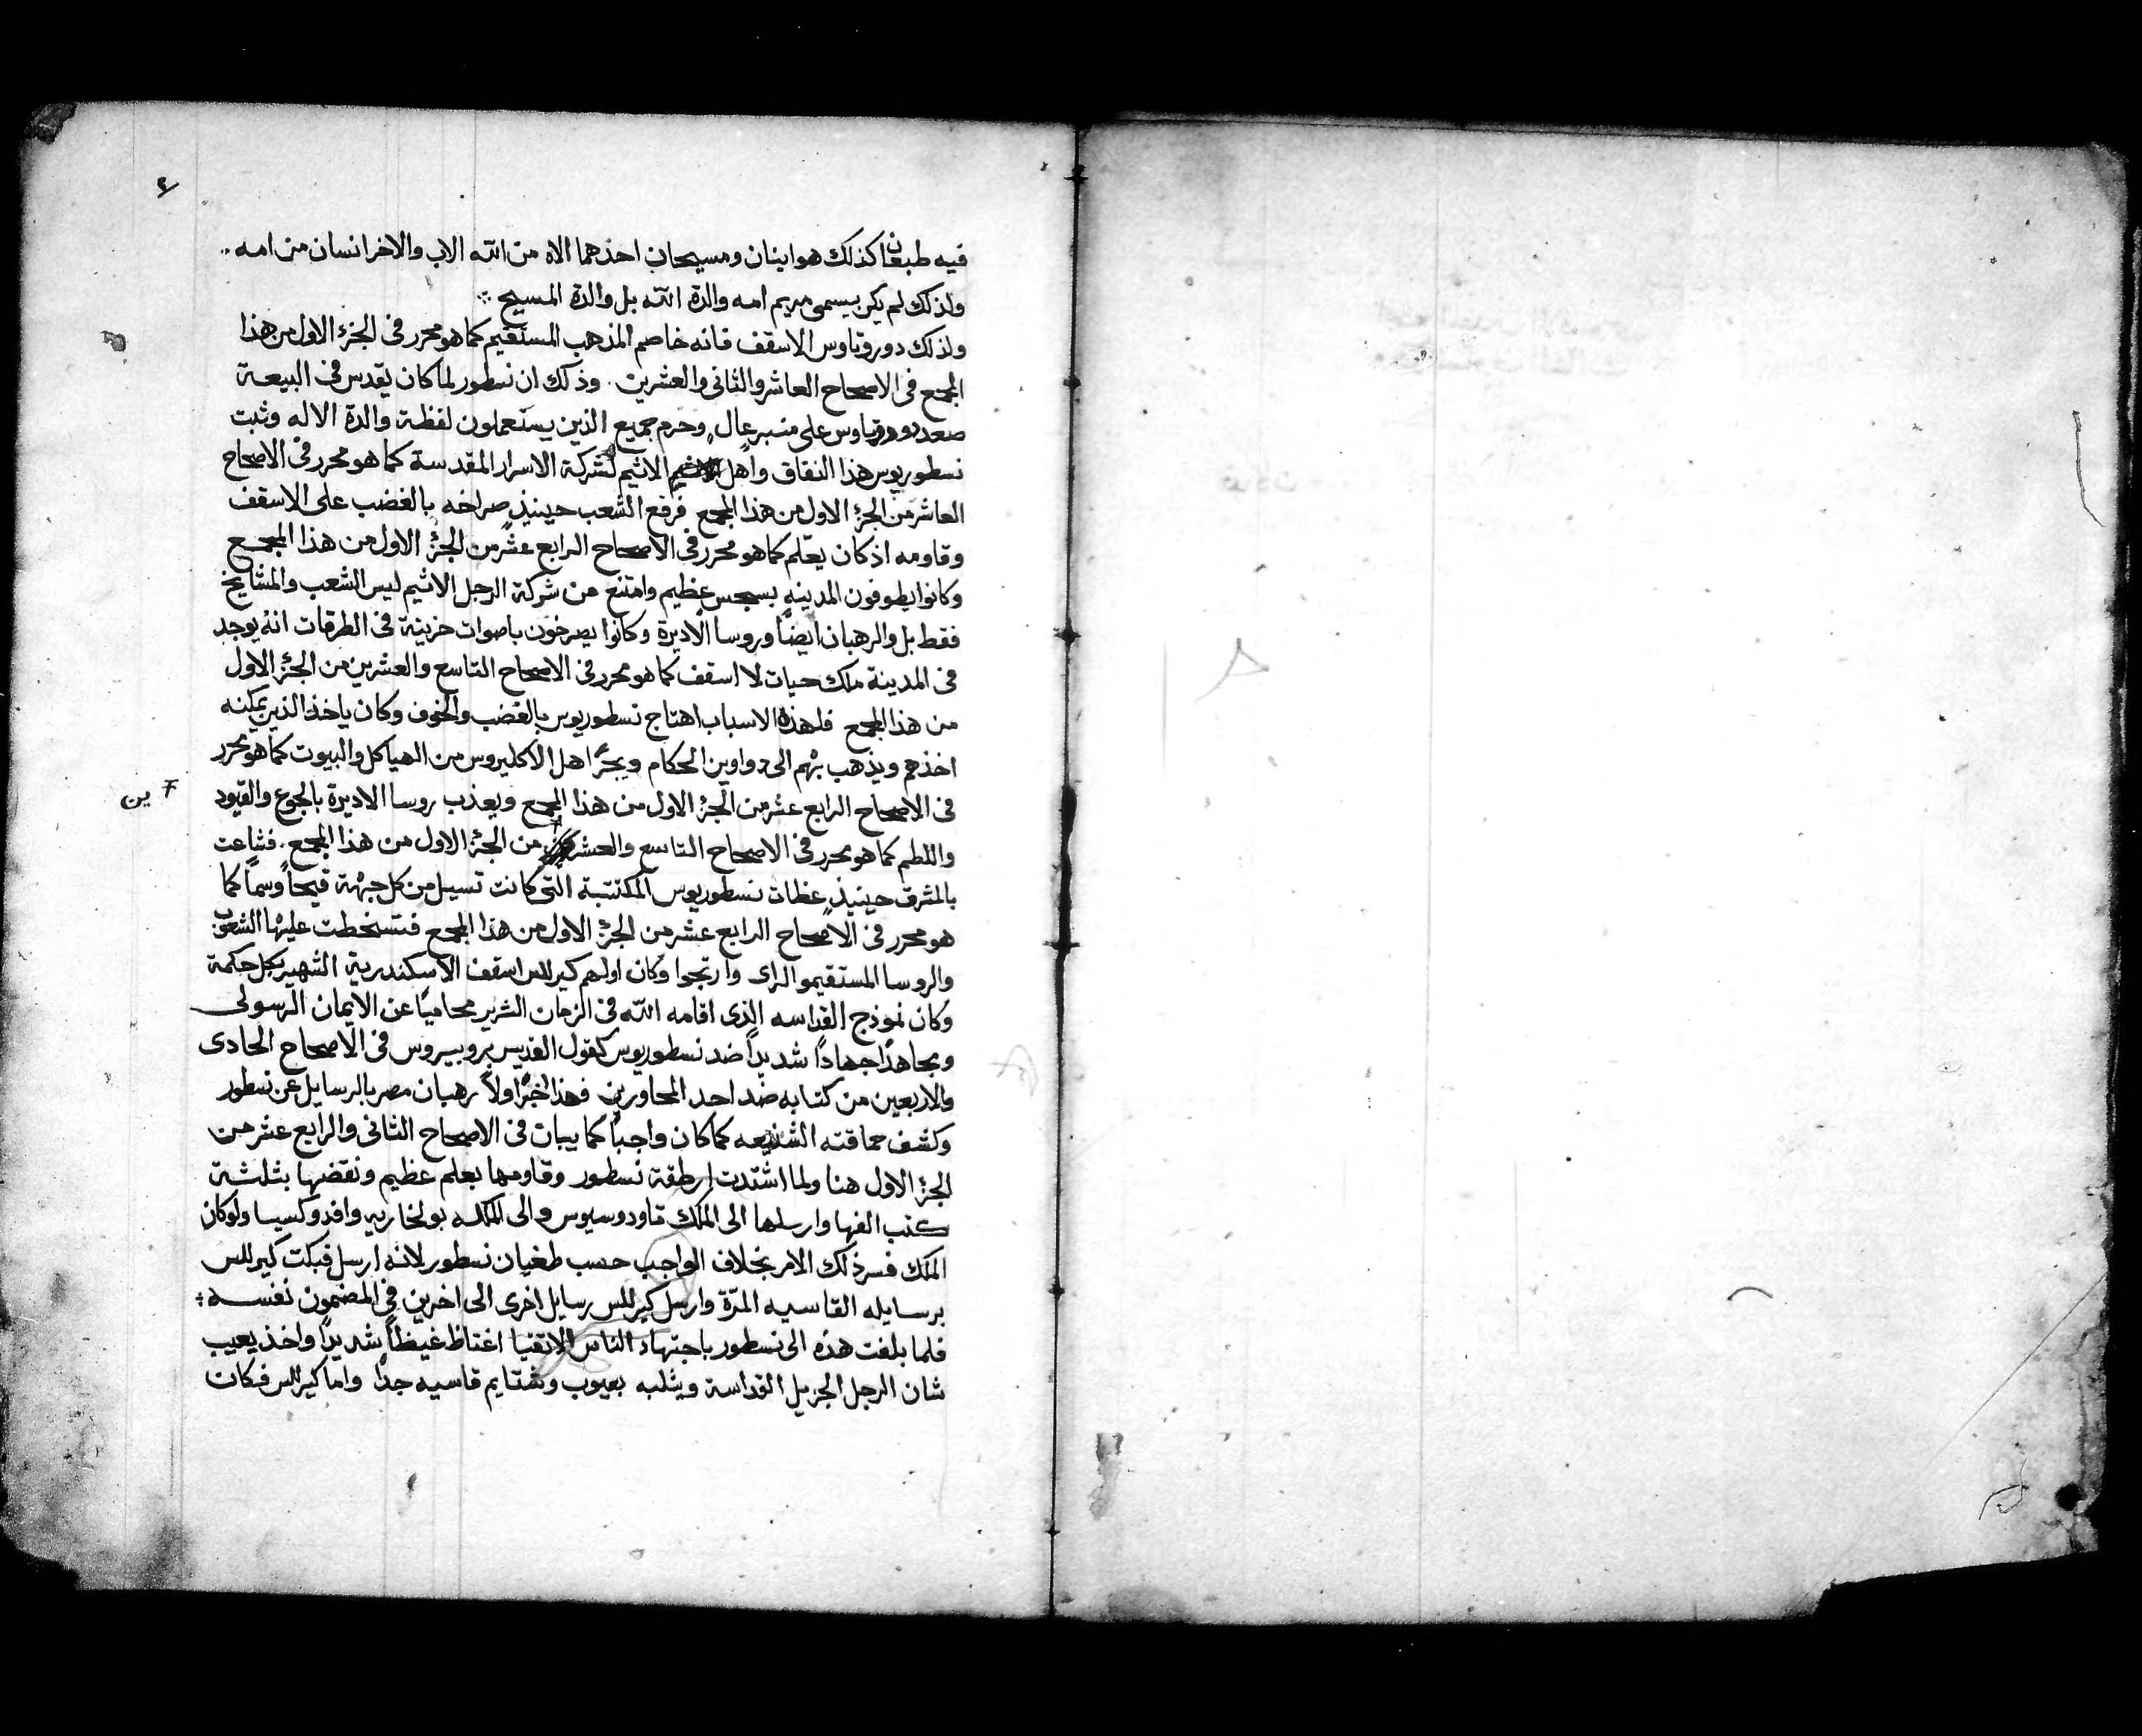 فيه طبعان كذلك هو ابنان ومسيحان احدهما الاه من الله الاب والاخر انسان من امه ..
ولذلك لم يكن يسمى مريم امه والدة الله بل والدة المسيح
ولذلك دوروتاوس الاسقف فانه خاصم المذهب المستقيم كما هو محرر فى الجزء الاول من هذا
المجمع فى الاصحاح العاشر والثانى والعشرين . وذلك ان نسطور لما كان يقدس فى البيعة
صعد دوروتاوس على منبر عال وحرم جميع الذين يستعملون لفظة والدة الاله وثبت
نسطوريوس هذا النفاق واهل الاثيم لشركة الاسرار المقدسة كما هو محرر فى الاصحاح
العاشر من الجزء الاول من هذا المجمع فرفع الشعب حينيذ صراخه بالغضب على الاسقف
وقاومه اذ كان يعلم كما هو محرر فى الاصحاح الرابع عشر من الجزء الاول من هذا المجمع
وكانوا يطوفون المدينه بسجس عظيم وامتنع من شركة الرجل الاثيم ليس الشعب والمشايخ
فقط بل والرهبان ايضًا وروسا الاديرة وكانوا يصرخون باصوات حزينة فى الطرقات انه يوجد
فى المدينة ملك حيات لا اسقف كما هو محرر فى الاصحاح التاسع والعشرين من الجزء الاول
من هذا المجمع فلهذه الاسباب اهتاج نسطوريوس بالغضب والخوف وكان ياخذ الذين يمكنه
اخذهم ويذهب بهم الى دواوين الحكام ويجرّ اهل الاكليروس من الهياكل والبيوت كما هو محرر
فى الاصحاح الرابع عشر من الجزء الاول من هذا المجمع ويعذب روسا الاديرة بالجوع والقيود
ين
واللطم كما هو محرر فى الاصحاح التاسع والعشر من الجزء الاول من هذا المجمع . فشاعت
بالمشرق حينيذ عظات نسطوريوس المكتتبة التى كانت تسيل من كل جهة قيحاً وسماً كما
هو محرر فى الاصحاح الرابع عشر من الجزء الاول من هذا المجمع فتسخطت عليها الشعوب
والروسا المستقيموا الراى وارتجوا وكان اولهم كيرللس اسقف الاسكندرية الشهير بكل حكمة
وكان نموذج القداسه الذى اقامه الله فى الزمان الشرير محاميًا عن الايمان الرسولى
ومجاهدًا جهادًا شديدًا ضد نسطوريوس كقول القديس بروبيروس فى الاصحاح الحادى
والاربعين من كتابه ضد احد المحاورين فهذا خبّر اولاً رهبان مصر بالرسايل عن نسطور
وكشف حماقته الشنيعه كما كان واجباً كما يبان فى الاصحاح الثانى والرابع عشر من
الجزء الاول هنا ولما اشتدت ارطقة نسطور وقاومها بعلم عظيم ونقضها بثلثة
كتب الفها وارسلها الى الملك تاودوسيوس والى الملكه بولخاريه وافدوكسيا ولو كان
الملك فسر ذلك الامر بخلاف الواجب حسب طغيان نسطور لانه ارسل فبكت كيرللس
برسايله القاسيه المرّة وارسل كيرللس رسايل اخرى الى اخرين فى المضمون نفسه
فلما بلغت هذه الى نسطور باجتهاد الناس الاتقيا اغتاظ غيظاً شديدًا واخذ يعيب
شان الرجل الجزيل القداسة ويثلبه بعيوب وشتايم قاسيه جدًا واما كيرللس فكان